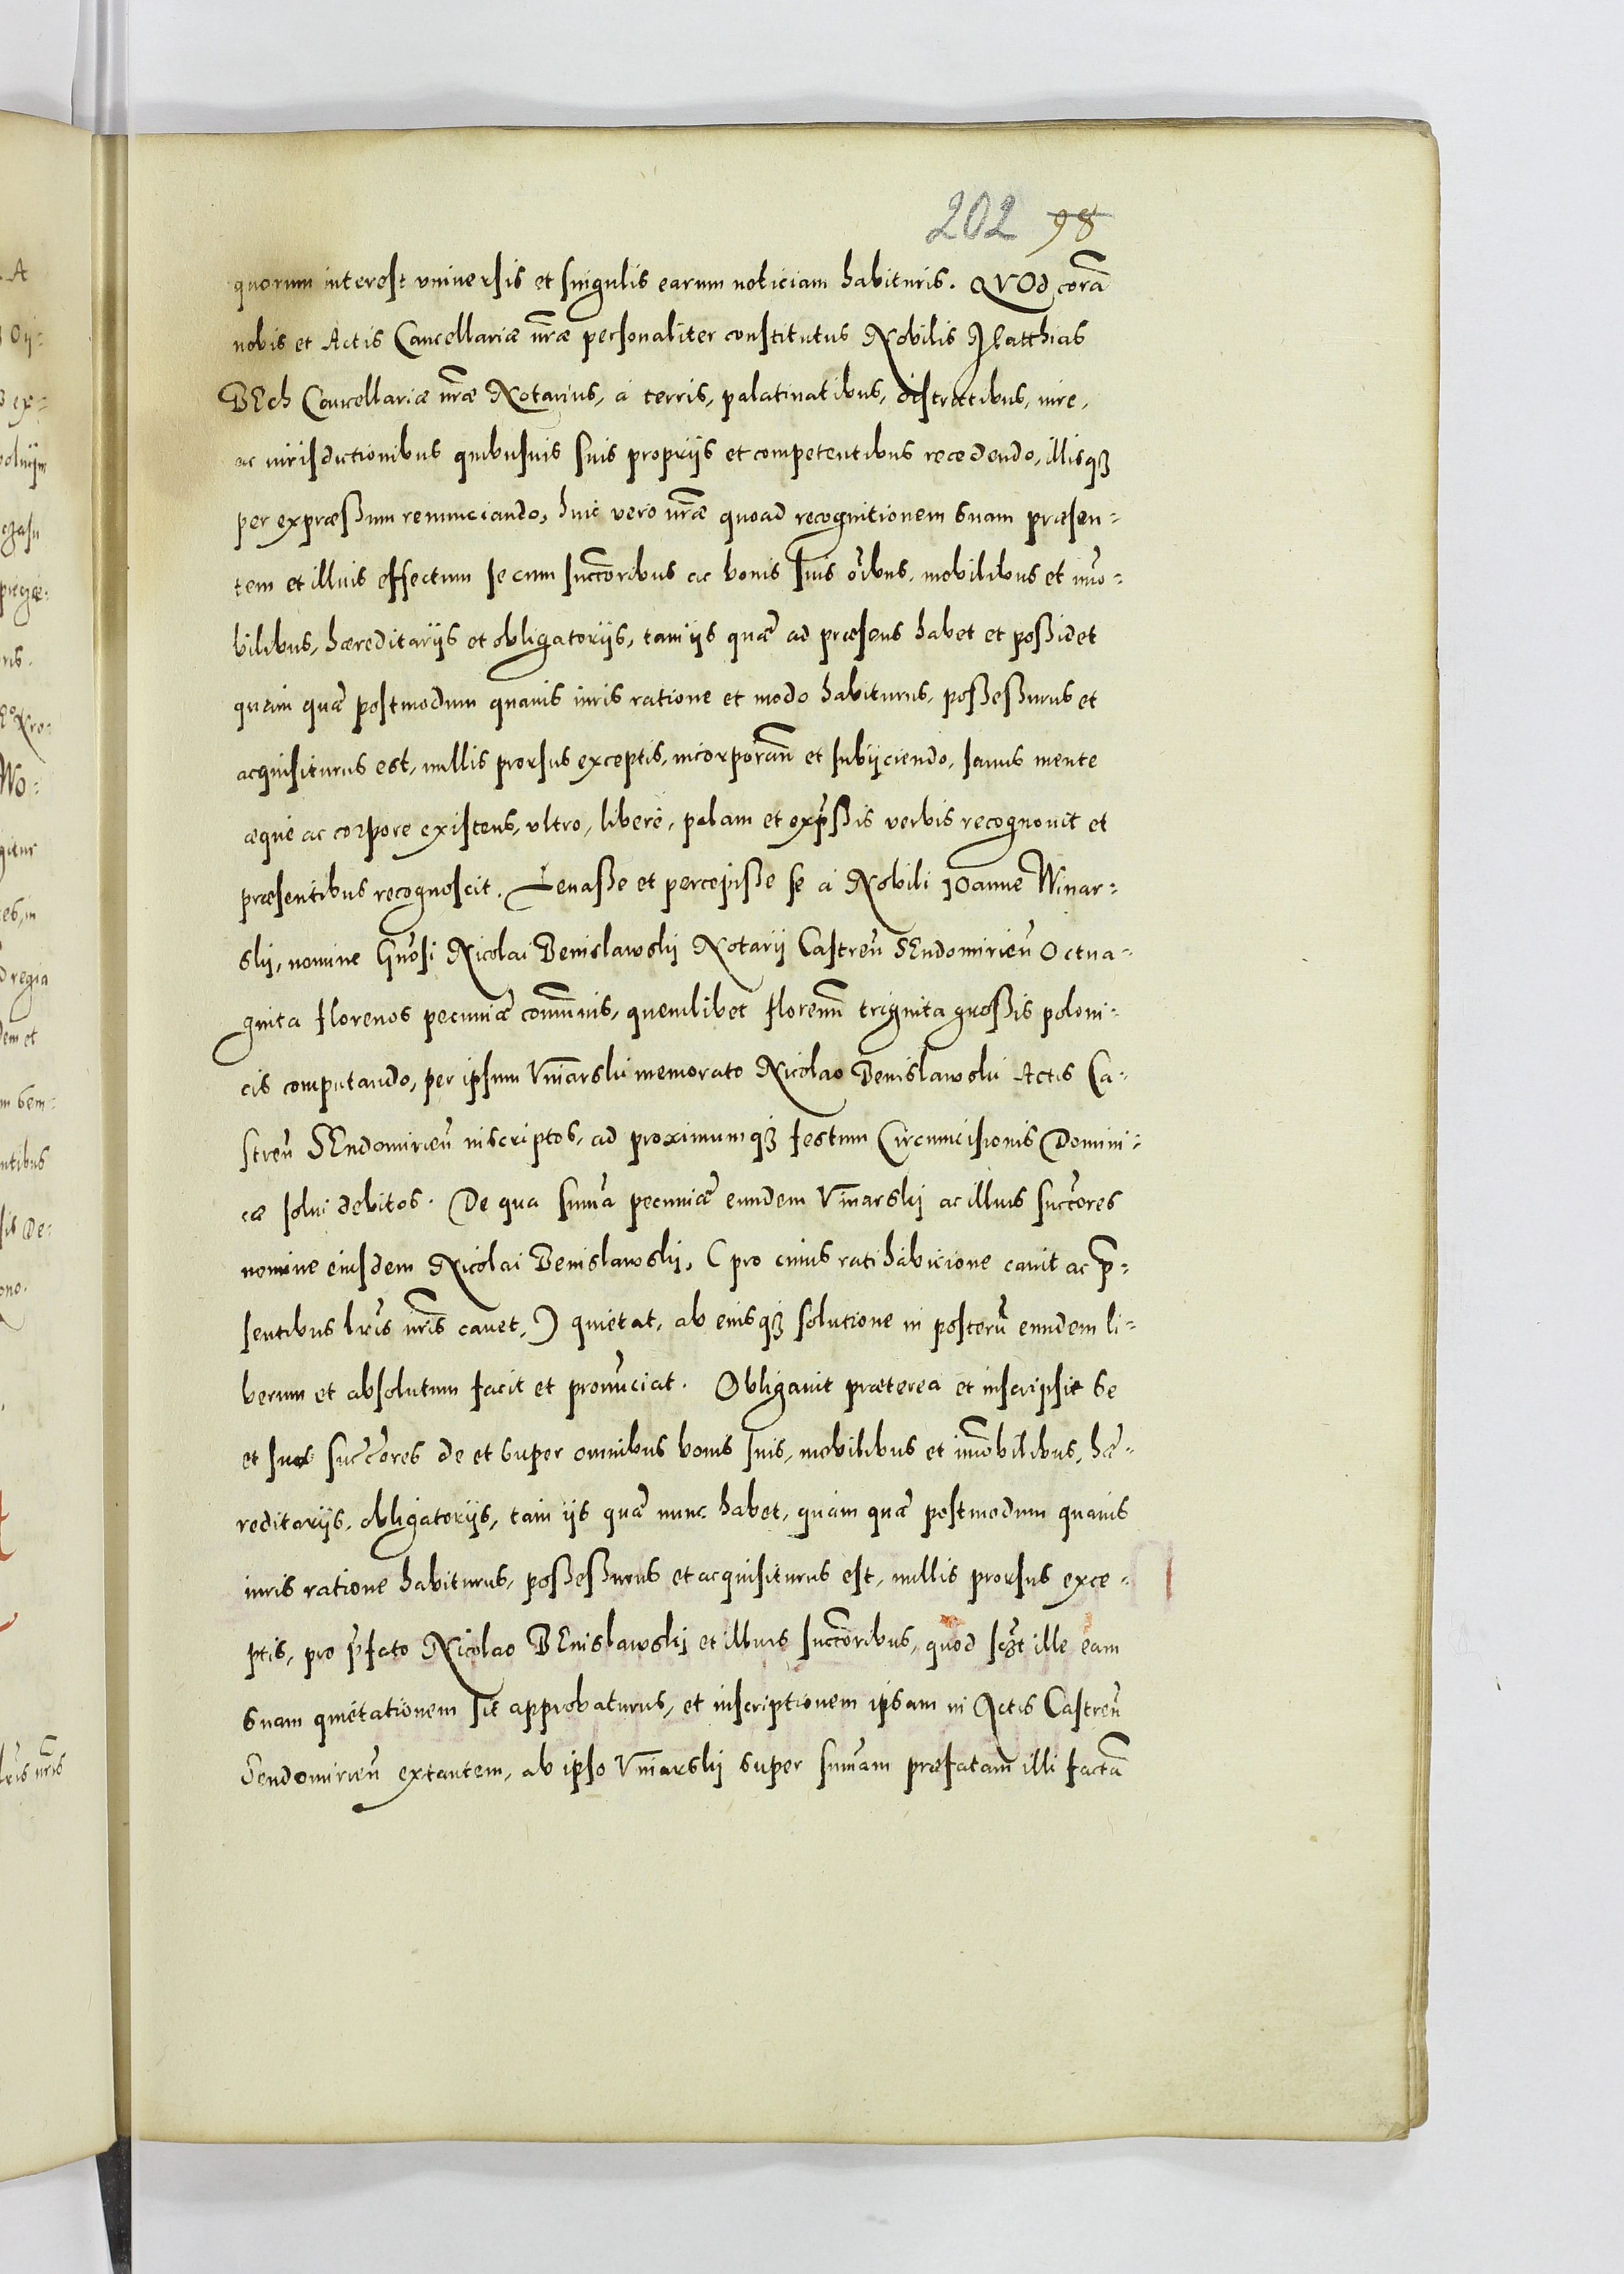 202 98
quorum interest vniuersis et singulis earum noticiam habituris. QVOd corã
nobis et Actis Cancellariæ nr̃æ personaliter constitutus Nobilis Matthias
BEch Cancellariæ nr̃æ Notarius, à terris, palatinatibus, districtibus, iure,
ac iurisdictionibus quibusuis suis proprijs et competentibus recedendo, illisqꝫ
per expræßum renunciando, huic vero nr̃æ quoad recognitionem suam præsen-
tem et illius effectum se cum succ̃oribus ac bonis suis õibus, mobilibus et im̃o-
bilibus, hæreditarijs et obligatorijs, tam ijs quæ ad præsens habet et poßidet
quàm quæ postmodum quauis iuris ratione et modo habiturus, poßeßurus et
acquisiturus est, nullis prorsus exceptis, incorporañ et subijciendo, sanus mente
æquè ac corpore existens, vltro, liberè, palam et exp̃ßis verbis recognouit et
præsentibus recognoscit. Leuaße et percepiße se à Nobili IOanne Winar-
skij, nomine Gnõsi Nicolai Benislawskij Notarij Castreñ SEndomirieñ Octua-
ginta florenos pecuniæ com̃unis, quemlibet florenũ triginta großis poloni-
cis computando, per ipsum Viniarski memorato Nicolao Benislawski Actis Ca-
streñ SEndomirieñ inscriptos, ad proximumqꝫ festum Circumcisionis Domini-
cæ solui debitos. De qua sum̃a pecuniæ eundem Viniarskij ac illius succ̃ores
nomine eiusdem Nicolai Benislawskij, (pro cuius ratihabicione cauit ac p̃-
sentibus lr̃is nr̃is cauet,) quietat, ab eiusqꝫ solutione in posterũ eundem li-
berum et absolutum facit et pronũciat. Obligauit præterea et inscripsit se
et suos succ̃ores de et super omnibus bonis suis, mobilibus et im̃obilibus, hæ-
reditarijs, obligatorijs, tam ijs quæ nunc habet, quàm quæ postmodum quauis
iuris ratione habiturus, poßeßurus et acquisiturus est, nullis prorsus exce-
ptis, pro p̃fato Nicolao BEnislawskj et illius succ̃oribus, quod scꝫt ille eam
suam quietationem sit approbaturus, et inscriptionem ipsam in Actis Castreñ
Sendomirieñ extantem, ab ipso Viniarskij super sum̃am præfatam illi factã